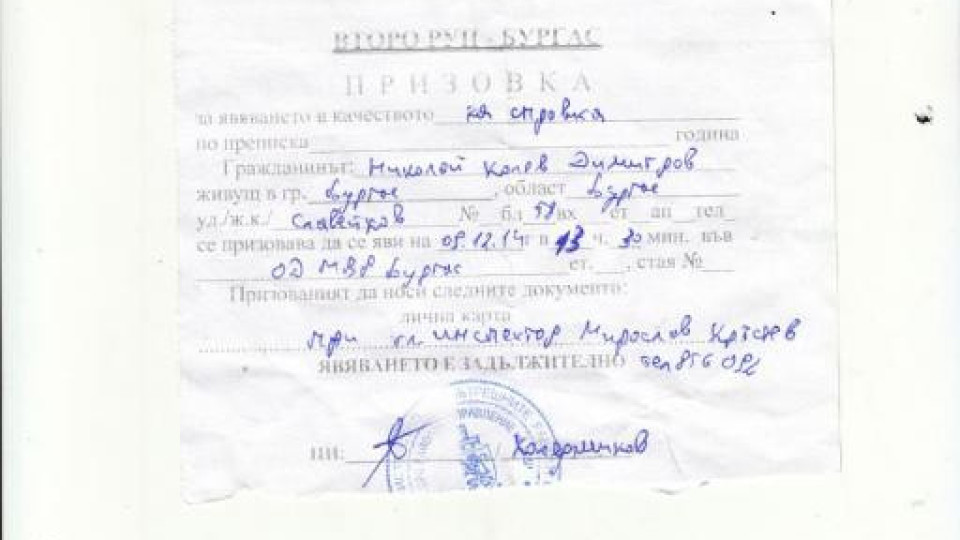 ВТОРО РУП - БУРГАС
ПРИЗОВКА
за явяването в качеството на справка
по преписка година
Гражданинът: Николай Колев Димитров
живущ в гр. Бургас, област Бургас
ул./ж.к./ Славейков № бл 57 вх ет ап тел
се призовава да се яви на 09.12.14 г в 13 ч. 30 мин. във
ОД МВР Бургас ет. , стая №
Призованият да носи следните документи:
лична карта
при гл. инспектор Мирослав Кръстев
ЯВЯВАНЕТО Е ЗАДЪЛЖИТЕЛНО тел 856 092
ПИ: / Холерничков